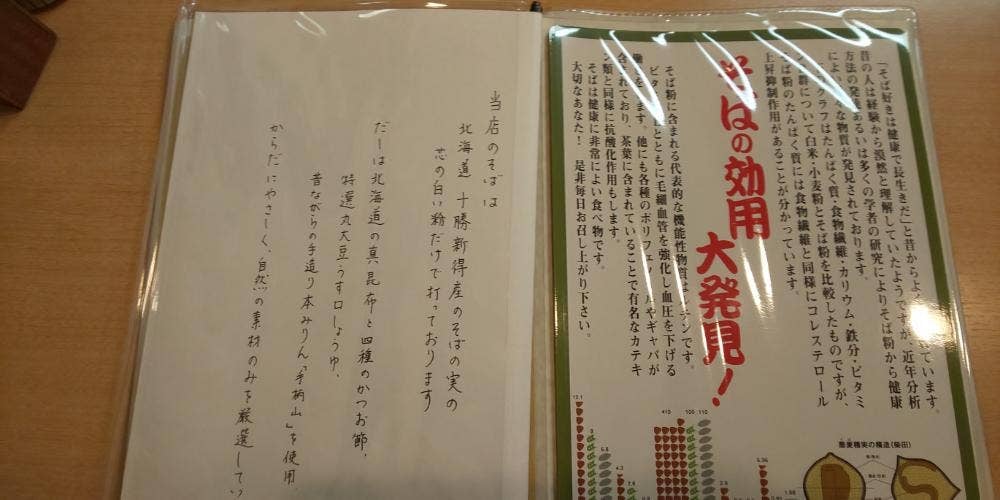 そばの効用
大発見！
「そば好きは健康で長生きだ」と昔からよく
ています。
昔の人は経験から漠然と理解していたようですが、近年分析
方法の発達あるいは多くの学者の研究によりそば粉から健康
によい
な物質が発見されております。
グラフはたんぱく質・食物繊維・カリウム・鉄分・ビタミ
群について白米・小麦粉とそば粉を比較したものですが、
そば粉のたんぱく質には食物繊維と同様にコレステロール
上昇抑制作用があることが分かっています。
そば粉に含まれる代表的な機能性物質は
チンです。
ビタミ
とともに毛細血管を強化し血圧を下げる
働きを
ます。他にも各種のポリフェノールやギャバが
含まれており、茶葉に含まれていることで有名なカテキ
ン類と同様に抗酸化作用もします。
そばは健康に非常によい食べ物です。
大切なあなた！ 是非毎日お召し上がり下さい。
蕎麦種実の構造(柴田)
13.1
9
6.8
4.2
410
100
110
5.36
1.98
当店のそばは
北海道 十勝新得産のそばの実の
芯の白い粉だけで打っております
だしは北海道の真昆布と四種のかつお節、
特選丸大豆・うす口しょうゆ、
昔ながらの手造り本みりん「手柄山」を使用。
からだにやさしく、自然の素材のみを厳選してい